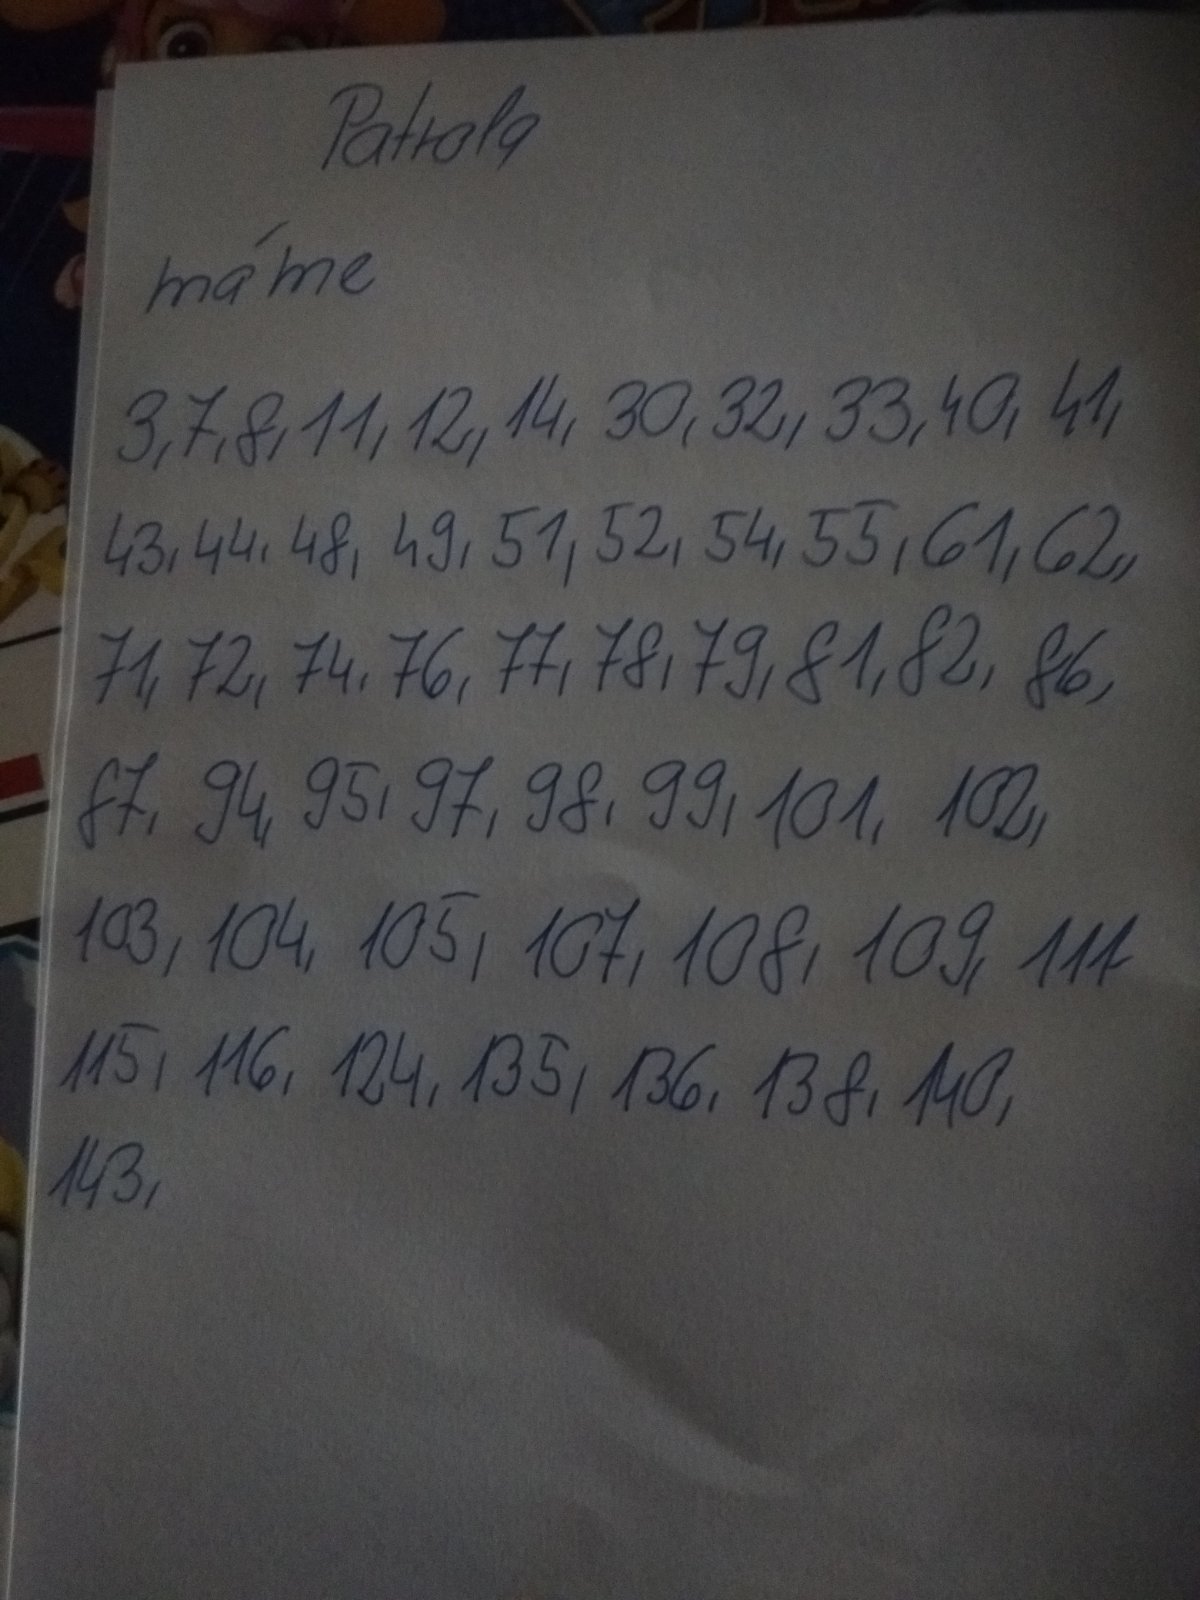 Patrola
máme
3, 7, 8, 11, 12, 14, 30, 32, 33, 40, 41,
43, 44, 48, 49, 51, 52, 54, 55, 61, 62,
71, 72, 74, 76, 77, 78, 79, 81, 82, 86,
87, 94, 95, 97, 98, 99, 101, 102,
103, 104, 105, 107, 108, 109, 111
115, 116, 124, 135, 136, 138, 140,
143,